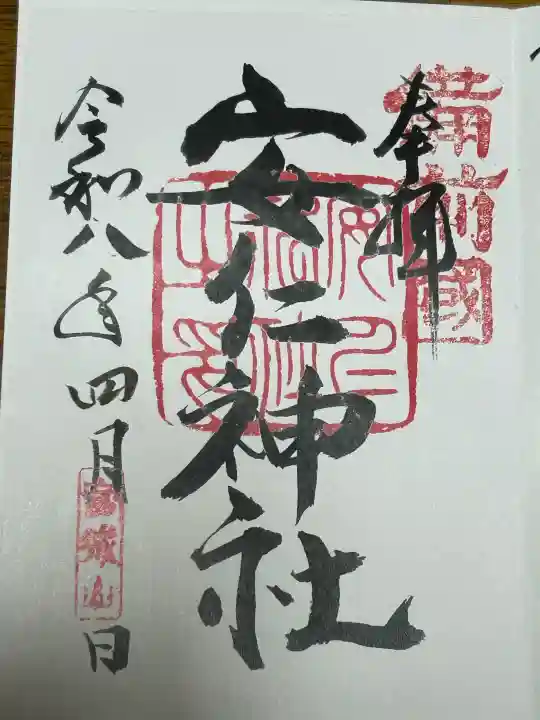 備前國
奉拝
安仁神社
令和八年四月日
宮城山